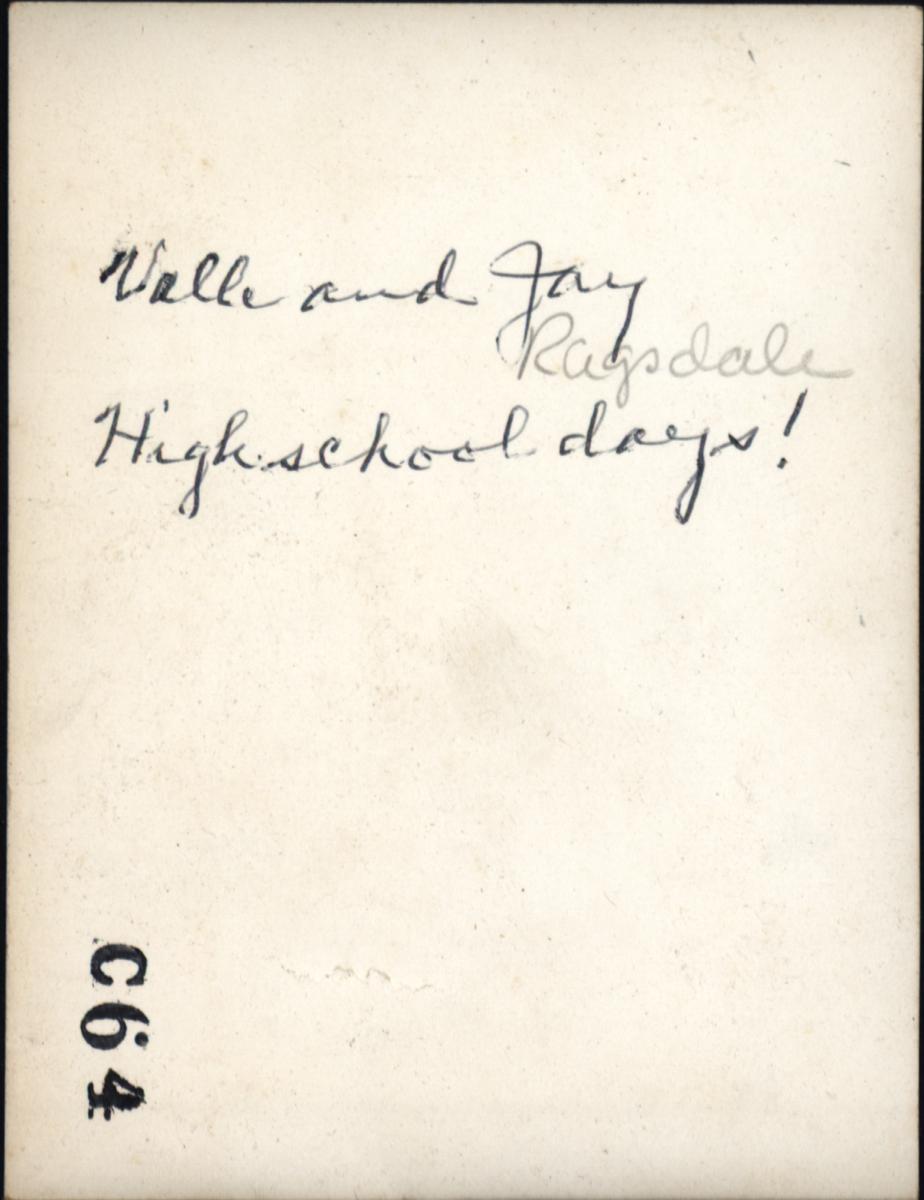 Valle and Jay
Ragsdale
High school days!
C64